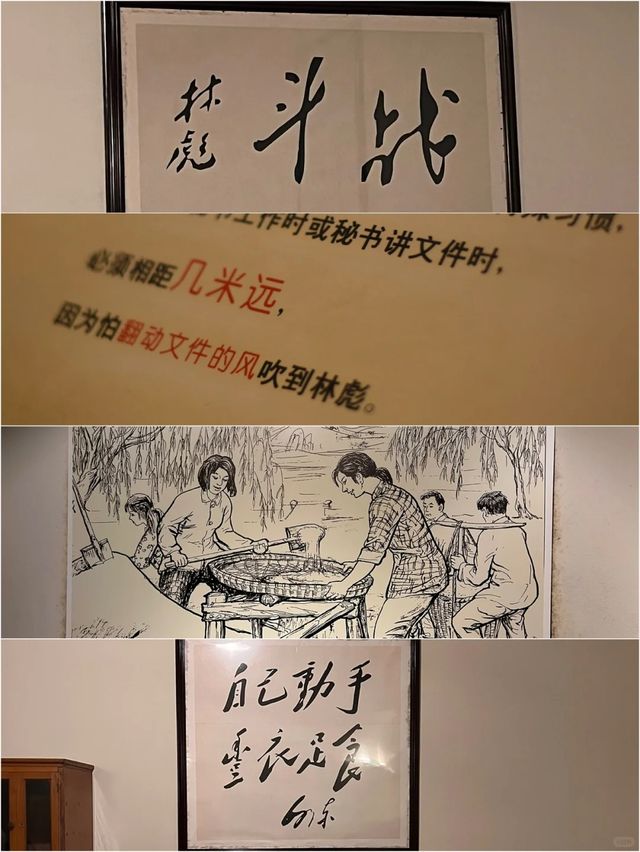 战斗
林彪
习惯，
工作时或秘书讲文件时，
必须相距几米远，
因为怕翻动文件的风吹到林彪。
自己動手
豐衣足食